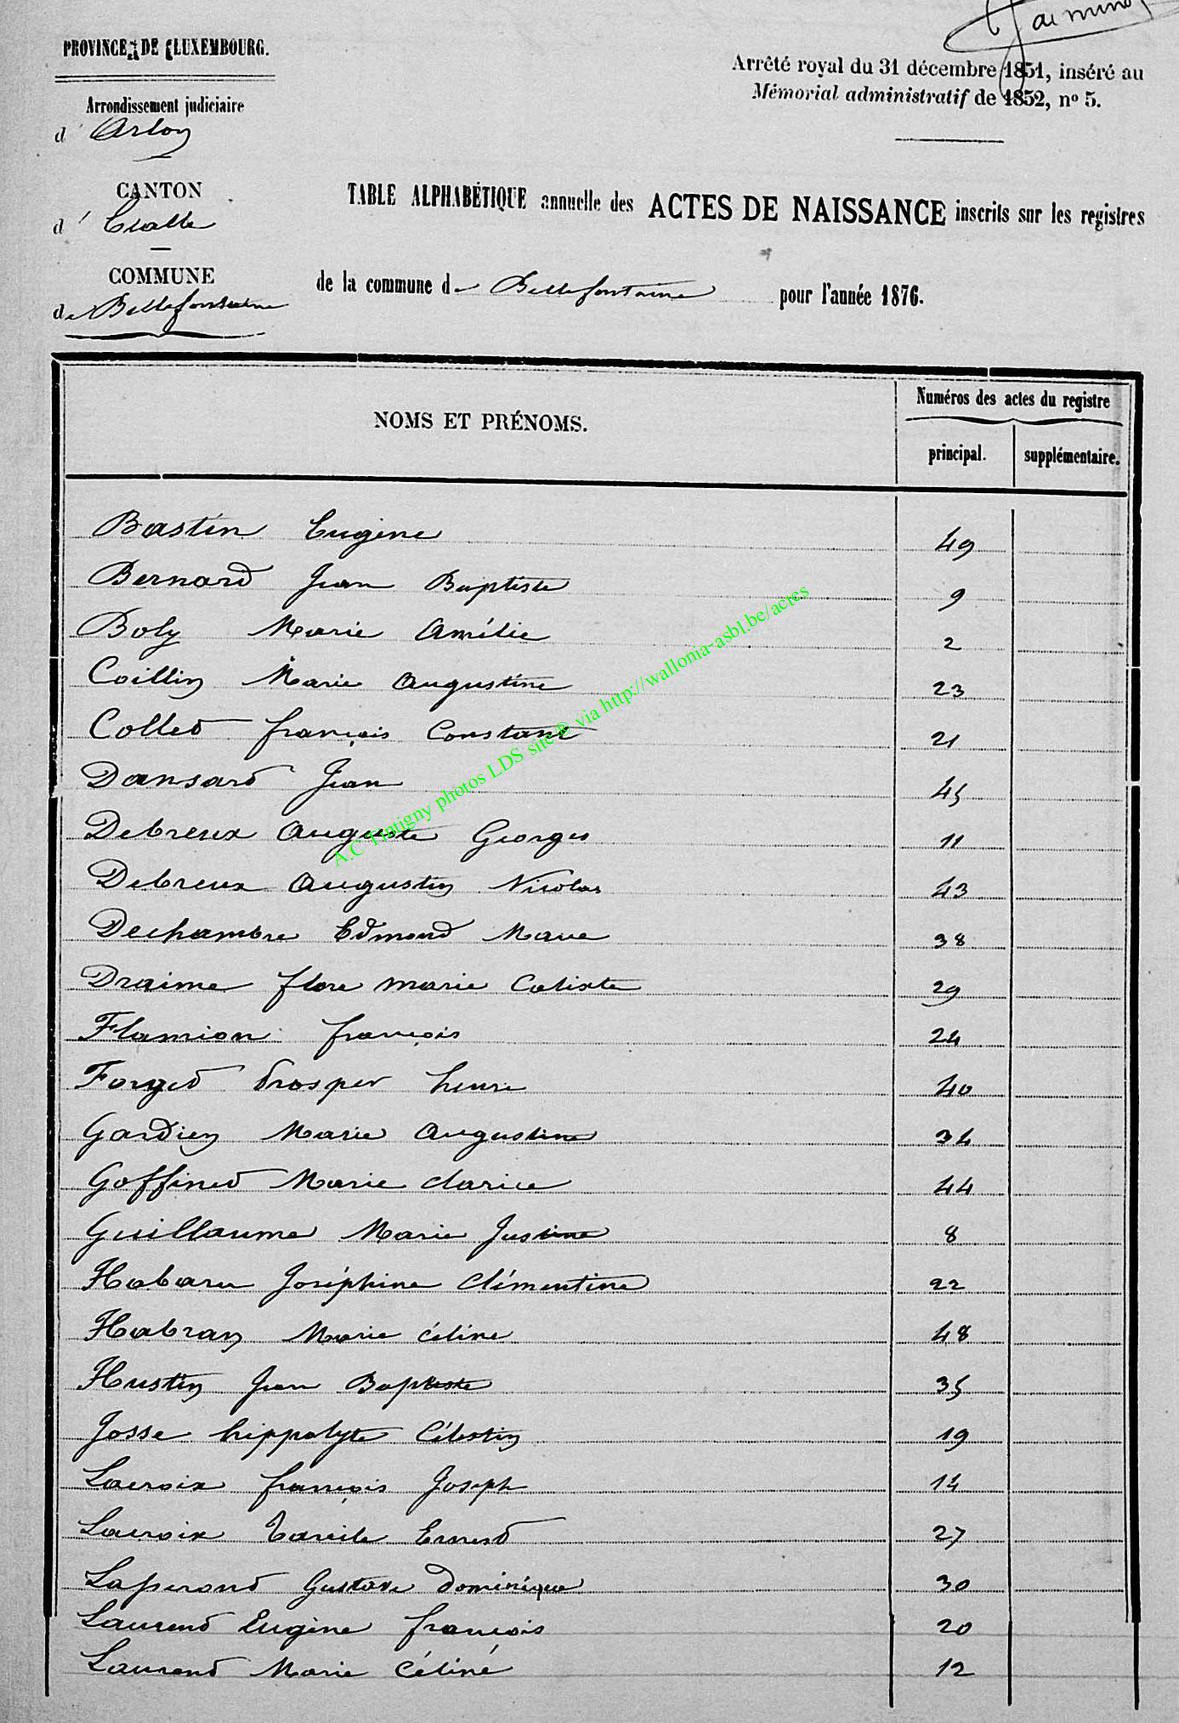 PROVINCE DE LUXEMBOURG.
Arrêté royal du 31 décembre 1851, inséré au
Mémorial administratif de 1852, nº 5.
Arrondissement judiciaire
d' Arlon
CANTON
d' Etalle
COMMUNE
de Bellefontaine
TABLE ALPHABÉTIQUE annuelle des ACTES DE NAISSANCE inscrits sur les registres
de la commune de Bellefontaine pour l'année 1876.
NOMS ET PRÉNOMS.
Numéros des actes du registre
principal. supplémentaire.
Bastin Eugène 49
Bernard Jean Baptiste 9
Boly Marie Amélie 2
Coillin Marie Augustine 23
Collet françois Constant 21
Dansard Jean 45
Debreux Auguste Georges 11
Debreux Augustin Nicolas 43
Dechambre Edmond Marie 38
Draime flore marie Calixte 29
Flamion françois 24
Forget Prosper henri 40
Gardien Marie Augustine 34
Goffinet Marie clarice 44
Guillaume Marie Justine 8
Habaru Joséphine Clémentine 22
Habran Marie Céline 48
Hustin Jean Baptiste 35
Josse hippolyte Célestin 19
Lacroix françois Joseph 14
Lacroix Ernest 27
Gustave Dominique 30
Laurent Eugène françois 20
Laurent Marie Céline 12
A.C Tintigny photos LDS site © via http://wallonia-asbl.be/actes